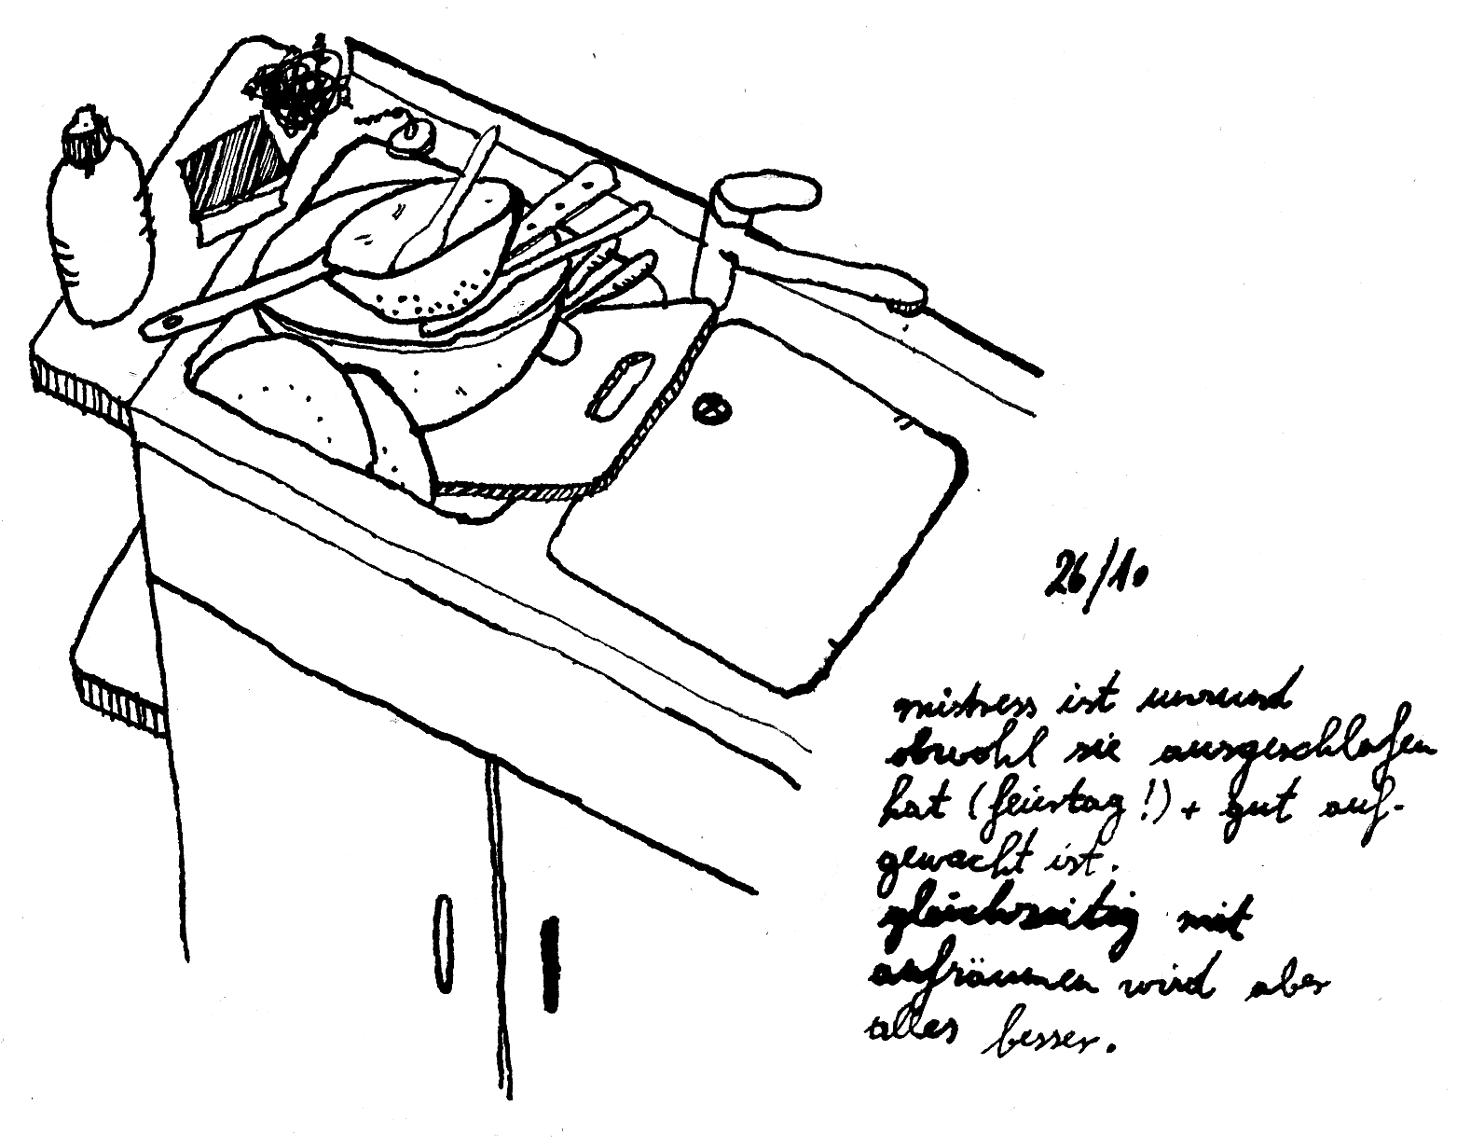 26/10
mistress ist unrund
obwohl sie ausgeschlafen
hat (feiertag!) + gut auf-
gewacht ist.
gleichzeitig mit
aufräumen wird aber
alles besser.